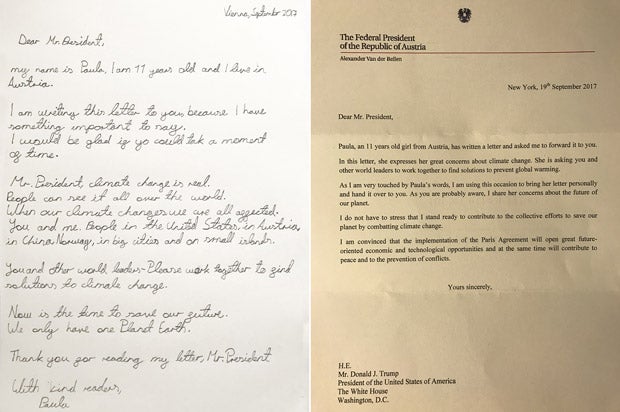 Vienna, September 2017
Dear Mr. President,
my name is Paula, I am 11 years old and I live in
Austria.
I am writing this letter to you, because I have
something important to say.
I would be glad if yo could tak a moment
of time.
Mr. President, climate change is real.
People can see it all over the world.
When our climate changes we are all affected.
You and me. People in the United States, in Austria,
in China, Norway, in big cities and on small islands.
You and other world leaders - Please work together to find
solutions to climate change.
Now is the time to save our future.
We only have one Planet Earth.
Thank you for reading my letter, Mr. President
With kind
Paula
The Federal President
of the Republic of Austria
Alexander Van der Bellen
New York, 19th September 2017
Dear Mr. President,
Paula, an 11 years old girl from Austria, has written a letter and asked me to forward it to you.
In this letter, she expresses her great concerns about climate change. She is asking you and
other world leaders to work together to find solutions to prevent global warming.
As I am very touched by Paula's words, I am using this occasion to bring her letter personally
and hand it over to you. As you are probably aware, I share her concerns about the future of
our planet.
I do not have to stress that I stand ready to contribute to the collective efforts to save our
planet by combatting climate change.
I am convinced that the implementation of the Paris Agreement will open great future-
oriented economic and technological opportunities and at the same time will contribute to
peace and to the prevention of conflicts.
Yours sincerely,
H.E.
Mr. Donald J. Trump
President of the United States of America
The White House
Washington, D.C.